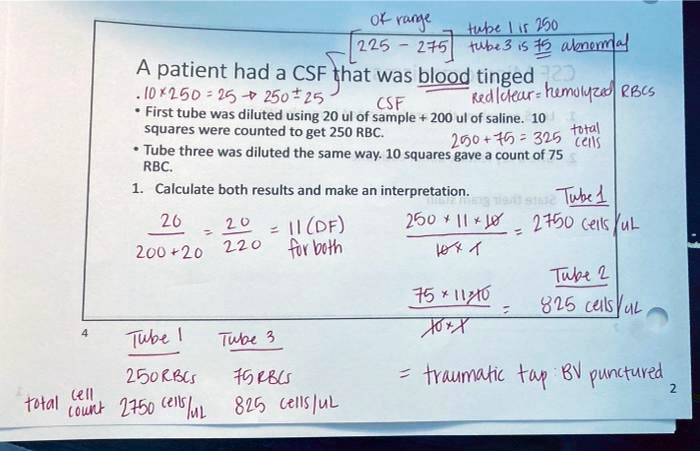 ok range
tube 1 is 250
[225 - 275] tube 3 is 75 abnormal
A patient had a CSF that was blood tinged
.10 x 250 = 25 → 250 ± 25
CSF
Red/clear = hemolyzed RBCs
• First tube was diluted using 20 ul of sample + 200 ul of saline. 10
squares were counted to get 250 RBC.
250 + 75 = 325 total cells
• Tube three was diluted the same way. 10 squares gave a count of 75
RBC.
1. Calculate both results and make an interpretation.
Tube 1
20/200+20 = 20/220 = 11 (DF) for both
250 x 11 x 10/10 x 1 = 2750 cells/uL
Tube 2
75 x 11 x 10/10 x 1 = 825 cells/uL
4
Tube 1 Tube 3
250 RBCs 75 RBCs
= traumatic tap: BV punctured
2
total cell count 2750 cells/uL 825 cells/uL